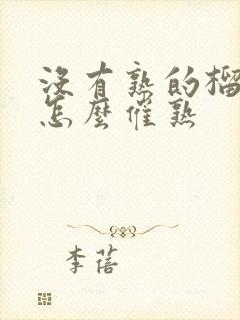 沒有熟的榴
怎麼催熟
李蓓